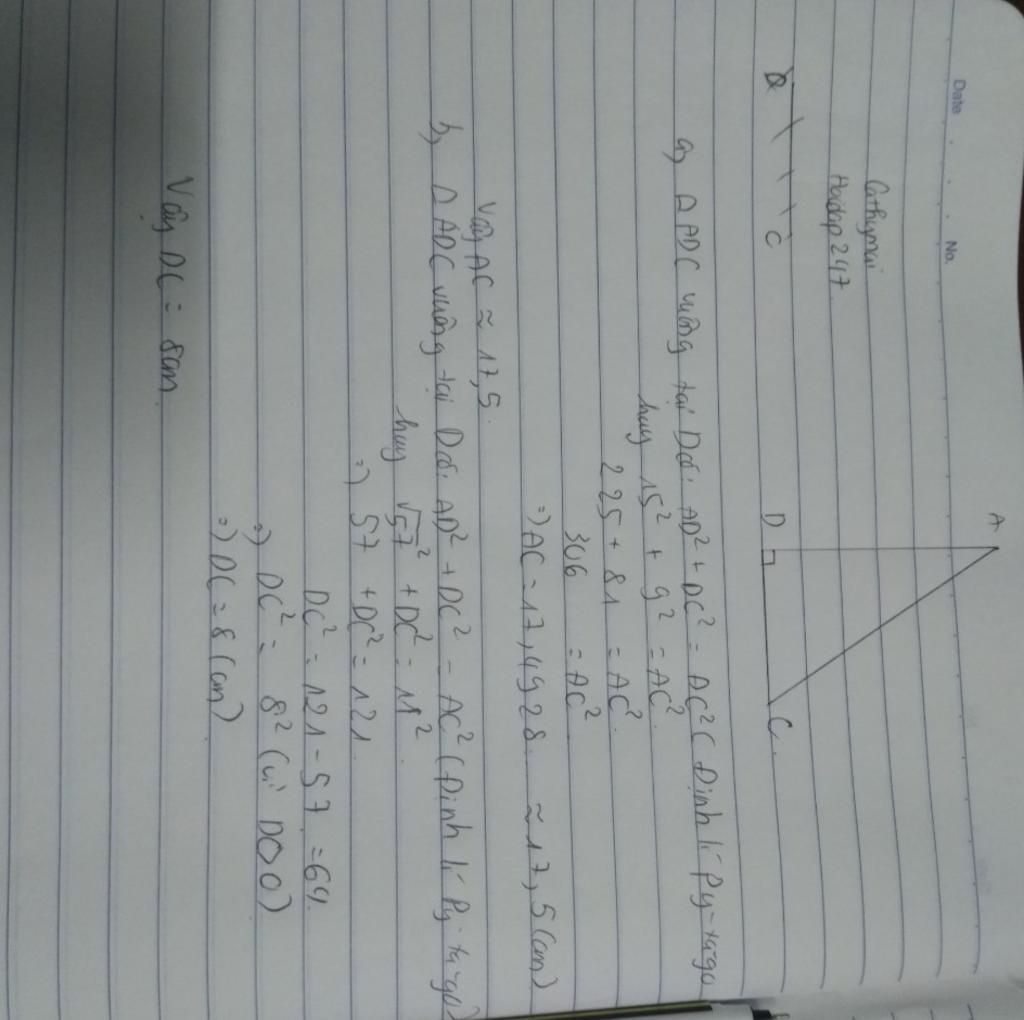 Date . . . . . No.
Cathymai
Hoidap247.
A
D
C
C
a) Δ ADC vuông tại D có: AD² + DC² = AC² (Định lí Py-ta-go
hay 15² + 9² = AC².
225 + 81 = AC²
306 = AC²
=) AC = 17,4928 ≈ 17,5 (cm)
Vậy AC ≈ 17,5.
b) Δ ADC vuông tại D có: AD² + DC² = AC² (Định lí Py-ta-go)
hay √57² + DC² = 11².
=) 57 + DC² = 121.
DC² = 121 - 57 = 64.
=) DC² = 8² (vì DC>0)
=) DC = 8 (cm)
Vậy DC = 8cm.